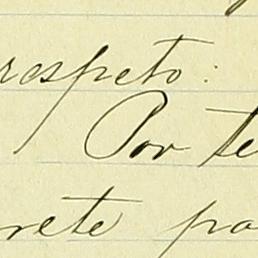 respeto:
Por te
rete pa